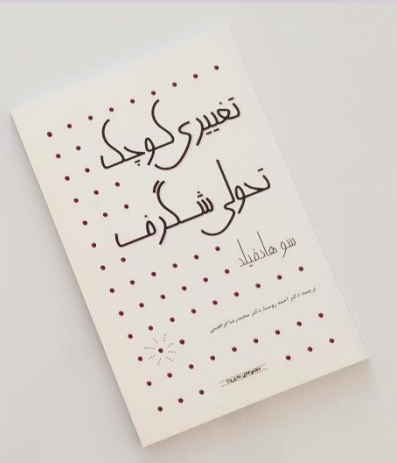 تغییری کوچک
تحولی شگرف
سو هادفیلد
ترجمه: دکتر احمد روستا، دکتر محمدرضا ابراهیمی
مجموعه‌ی مدیریت